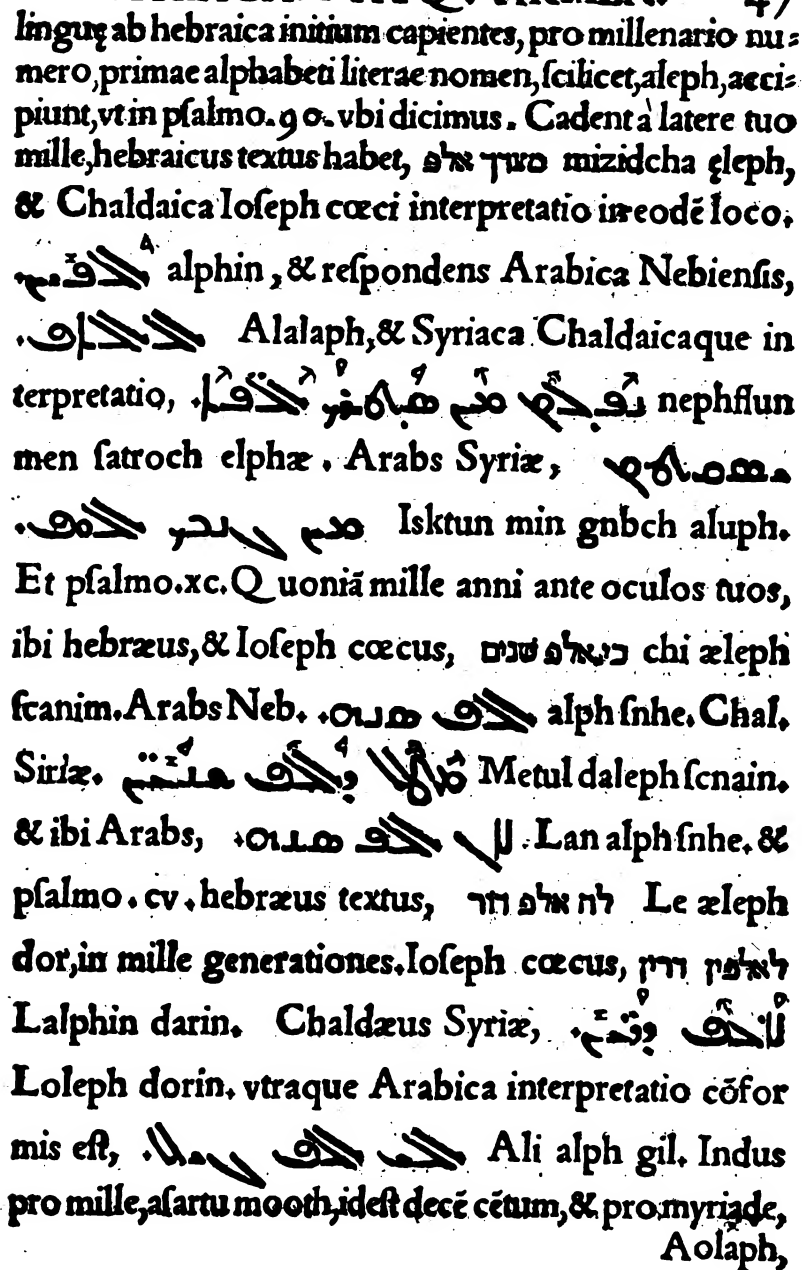 linguę ab hebraica initium capientes, pro millenario nu⸗
mero, primae alphabeti literae nomen, ſcilicet, aleph, acci⸗
piunt, vt in pſalmo. 90. vbi dicimus. Cadent à latere tuo
mille, hebraicus textus habet, מצדך אלפ mizidcha ęleph,
& Chaldaica Ioſeph cœci interpretatio in eodē loco.
ܐܠܦܝܢ alphin, & reſpondens Arabica Nebienſis,
Alalaph, & Syriaca Chaldaicaque in
terpretatio, ܢܦܠܘܢ ܡܢ ܣܛܪܟ ܐܠܦܐ. nephſlun
men ſatroch elphæ. Arabs Syriæ,
ܡܢ ܐܠܘܦ. Isktun min gnbch aluph.
Et pſalmo. xc. Quoniã mille anni ante oculos tuos,
ibi hebræus, & Ioſeph cœcus, כי אלפ שנים chi æleph
ſcanim. Arabs Neb. ܐܠܦ ܣܢܗ. alph ſnhe. Chal.
Siriæ. ܡܛܠ ܕܐܠܦ ܫܢܝܢ Metul daleph ſcnain.
& ibi Arabs, ܠܢ ܐܠܦ ܣܢܗ. Lan alph ſnhe. &
pſalmo. cv. hebræus textus, לה אלפ דר Le æleph
dor, in mille generationes. Ioſeph cœcus, לאלפין דרין
Lalphin darin. Chaldæus Syriæ, ܠܐܠܦ ܕܪܝܢ.
Loleph dorin. vtraque Arabica interpretatio cōfor
mis eſt, ܐܠܦ Ali alph gil. Indus
pro mille, aſartu mooth, ideſt decē cētum, & pro myriade,
Aolaph,